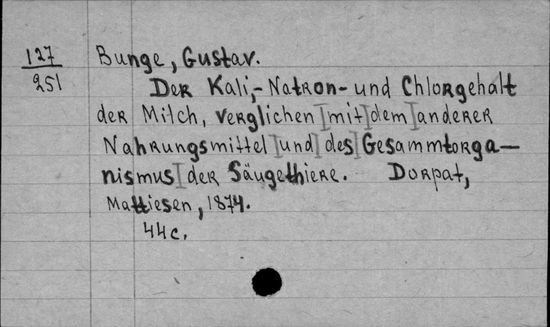 127
251
Bunge, Gustav.
Der Kali,- Natron- und Chlorgehalt
der Milch, verglichen mit dem anderer
Nahrungsmittel und des Gesammtorga-
nismus der Säugethiere. Dorpat,
Mattiesen, 1874.
44 c.